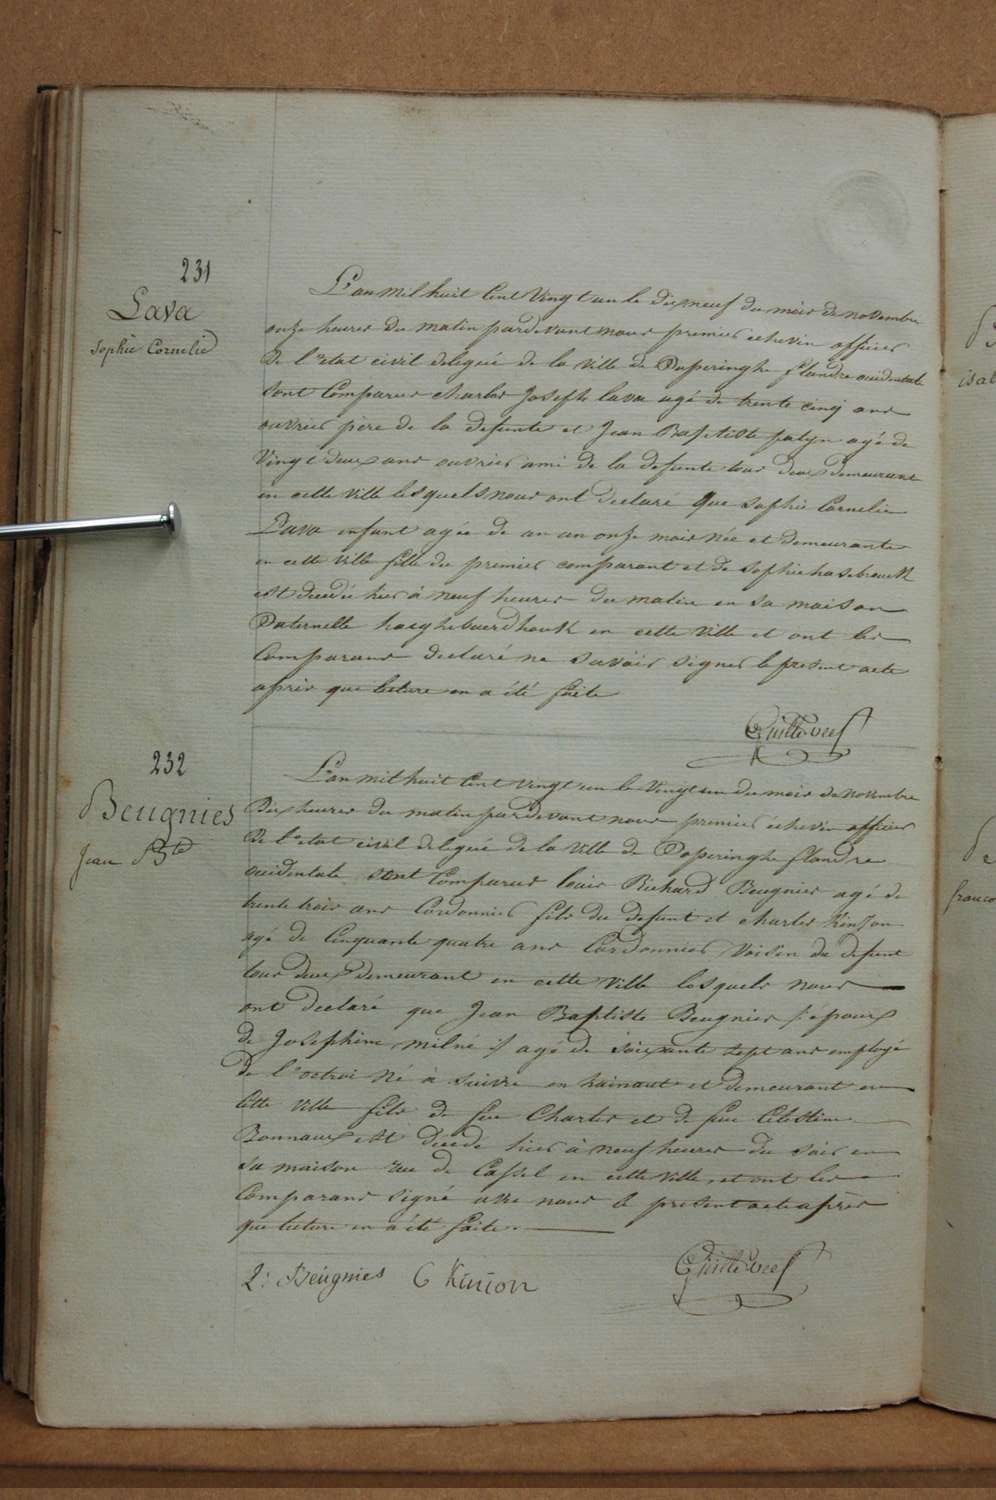 231
Lava
Sophie Cornelie
L'an mil huit Cent Vingt un le dix neuf du mois de novembre
onze heures du matin pardevant nous premier echevin officier
de l'etat civil delegué de la ville de Poperinghe flandre occidentale
sont Comparus charles Joseph lava agé de trente cinq ans
ouvrier père de la defunte et Jean Baptiste
agé de
Vingt deux ans ouvrier ami de la defunte tous deux demeurant
en cette ville lesquels nous ont declaré que sophie Cornelie
Lava enfant agée de un an onze mois née et demeurante
en cette ville fille du premier comparant et de Sophie hasebrouck
est decedée hier à neuf heures du matin en sa maison
Paternelle en cette Ville et ont les
Comparans declaré ne savoir signer le present acte
après que lecture en a été faite
232
Beugnies
Jean Bte
L'an mil huit Cent vingt un le Vingt un du mois de novembre
dix heures du matin pardevant nous premier échevin officier
de l'etat civil delegué de la Ville de Poperinghe flandre
occidentale sont Comparus louis Richard Beugnies agé de
trente trois ans Cordonnier fils du defunt et charles Kinion
agé de Cinquante quatre ans Cordonnier Voisin du defunt
tous deux demeurant en cette Ville lesquels nous
ont declaré que Jean Baptiste Beugnies (: époux
de Josephine milné :) agé de soixante sept ans employé
de l'octroi Né à suivre en hainaut et demeurant en
cette Ville fils de feu Charles et de feue Celestine
Bonnaux est décédé hier à neuf heures du soir en
sa maison rue de Cassel en cette ville, et ont les
Comparans signé avec nous le present acte après
que lecture en a été faite.
L: Beugnies C Kinion